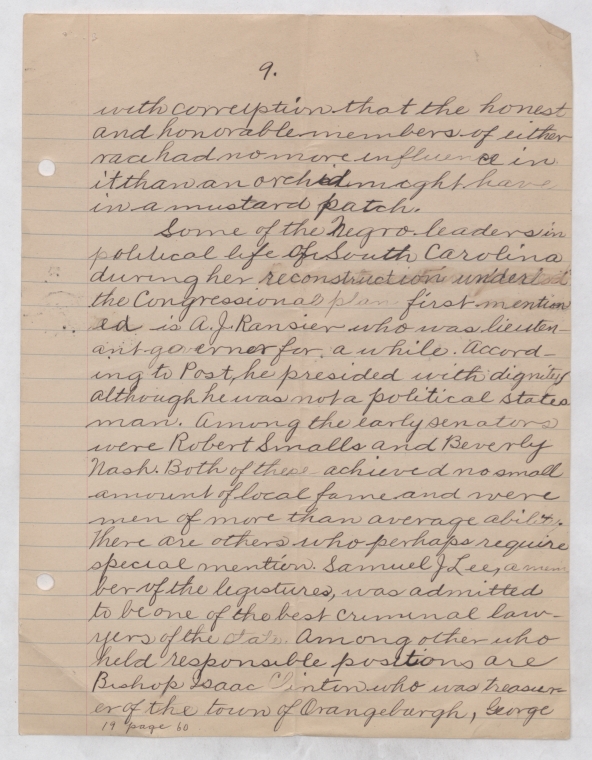 9.
with corruption that the honest
and honorable members of either
race had no more influence in
it than an orchid might have
in a mustard patch.
Some of the Negro leaders in
political life of South Carolina
during her reconstruction under
the Congressional plan first mention
ed is A. J. Ransier who was lieuten-
ant-governer for a while. Accord-
ing to Post, he presided with dignity
although he was not a political states
man. Among the early senators
were Robert Smalls and Beverly
Nash. Both of these achieved no small
amount of local fame and were
men of more than average ability.
There are others who perhaps require
special mention. Samuel J. Lee, a mem
ber of the legistures, was admitted
to be one of the best criminal law-
yers of the state. Among other who
held responsible positions are
Bishop Isaac Clinton who was treasur-
er of the town of Orangeburgh, George
19 page 60